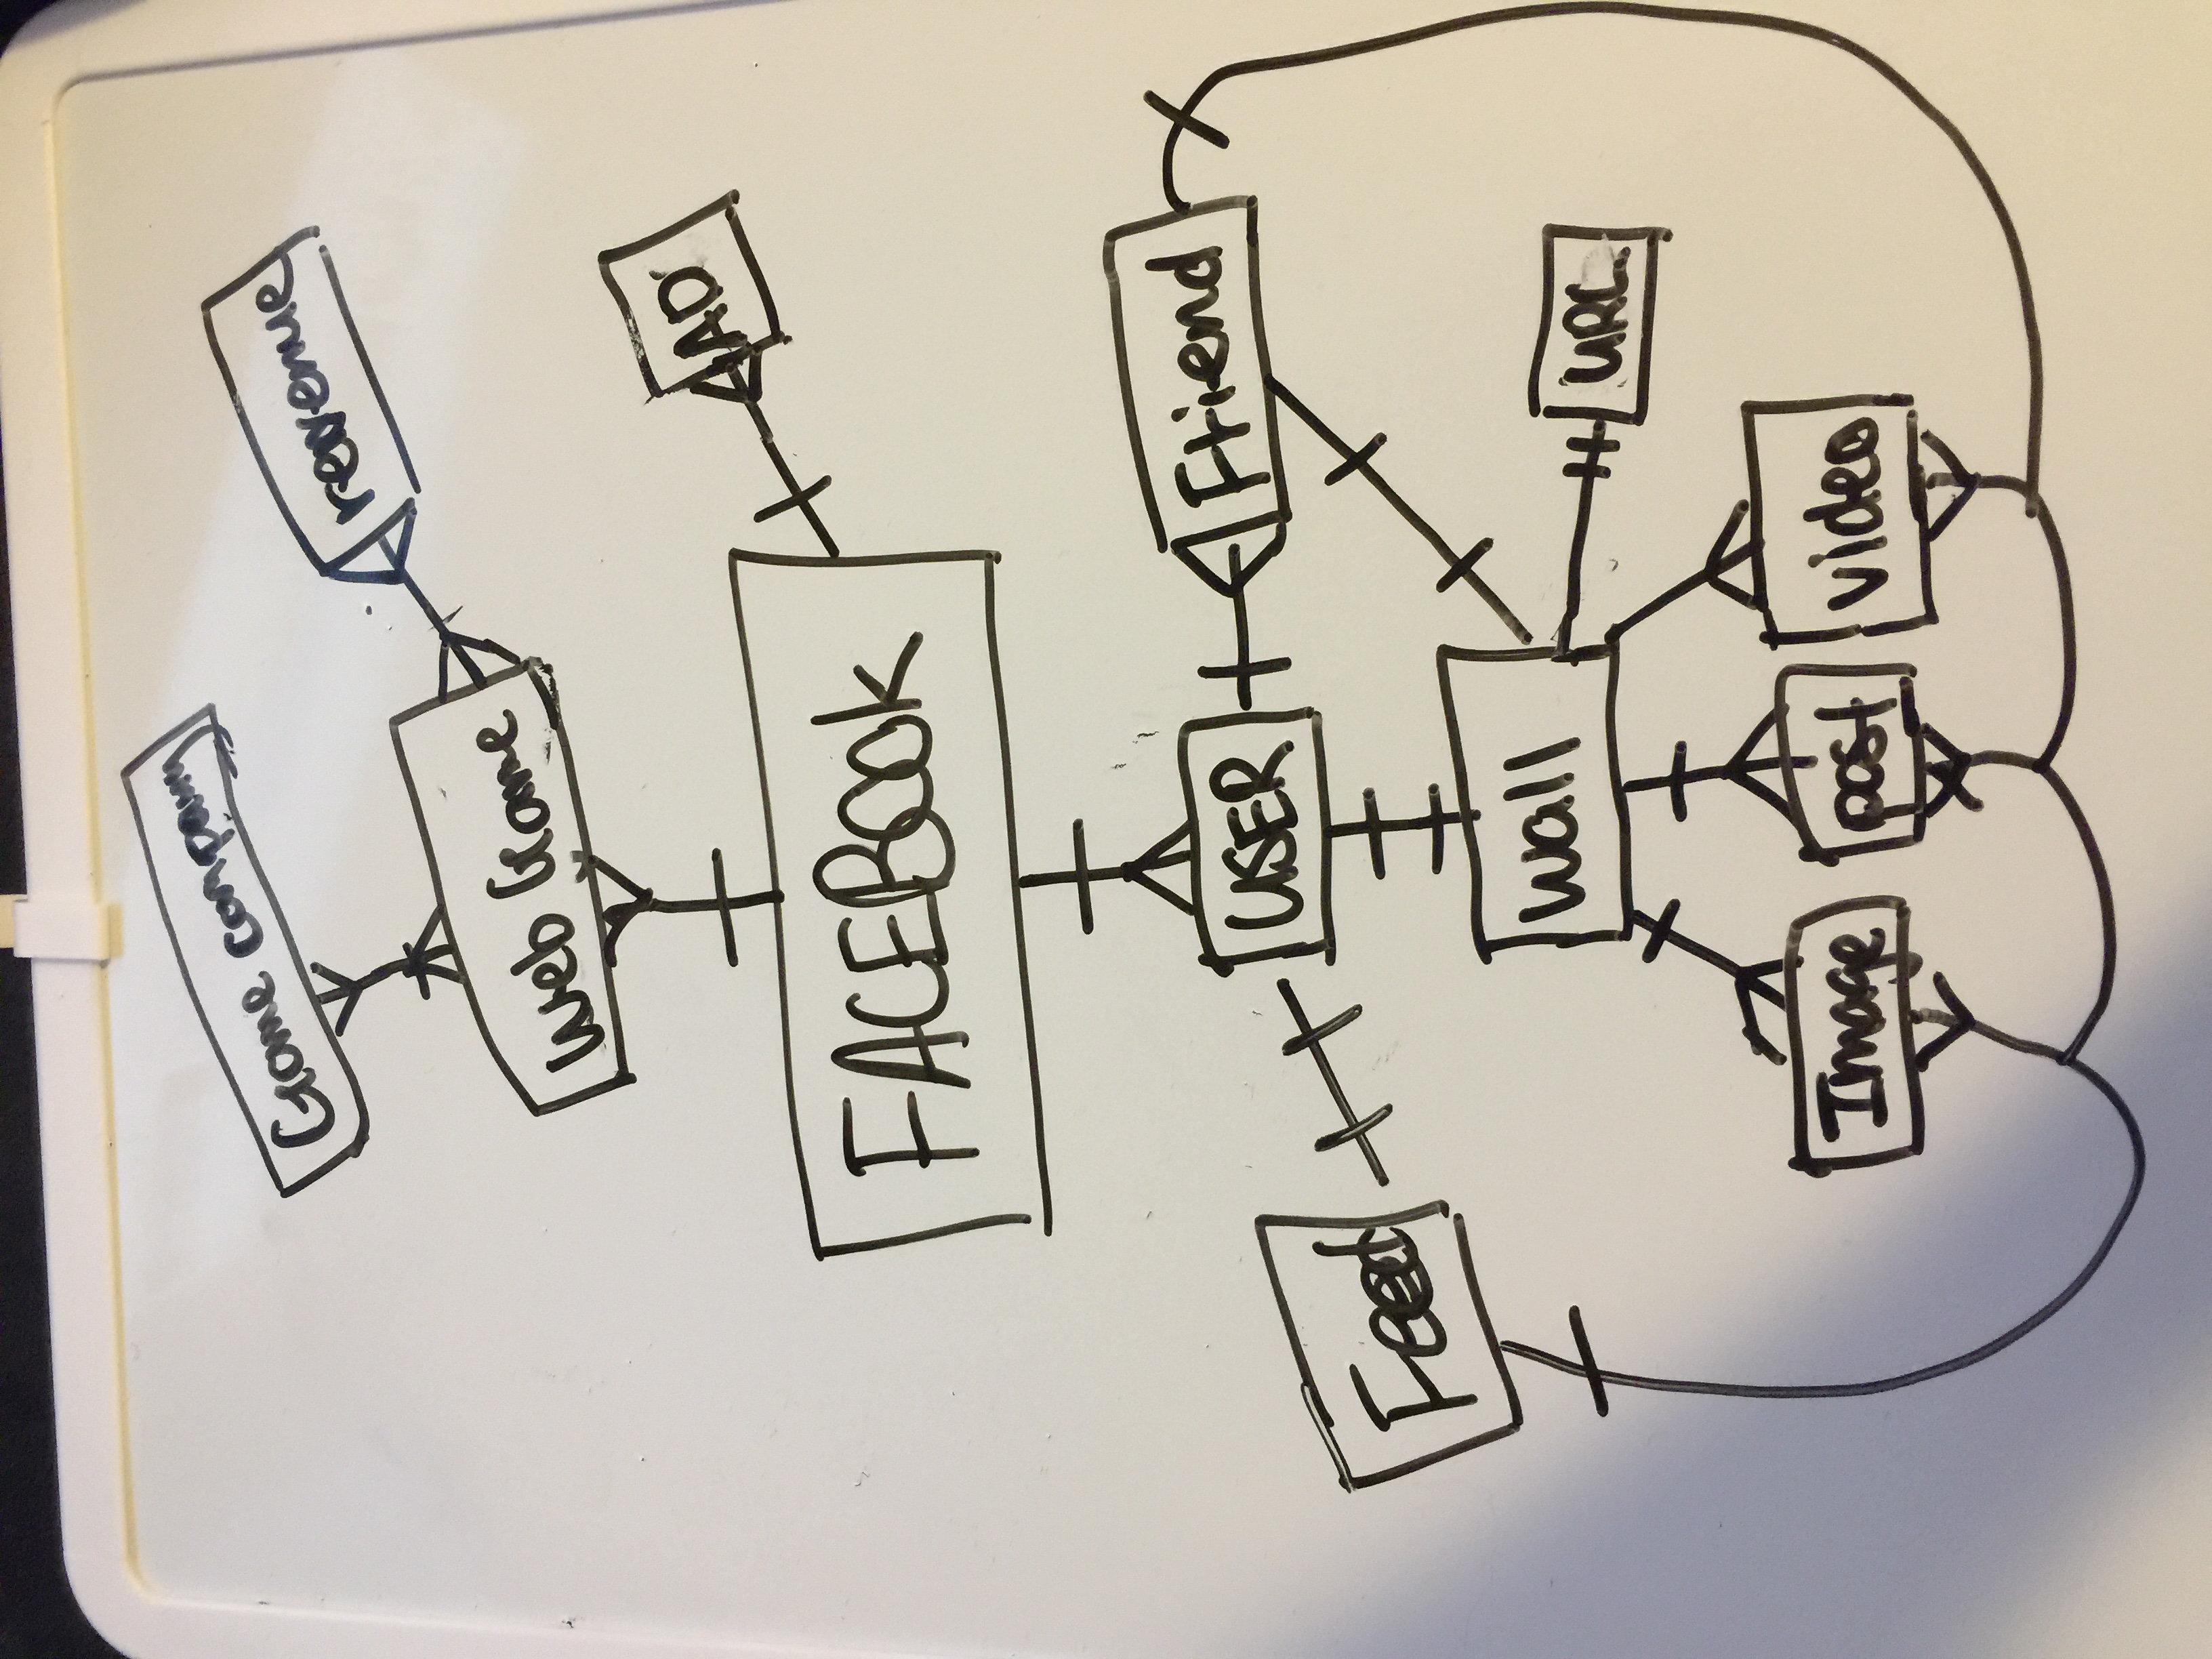 Game company
revenue
Web Game
AD
FACEBook
Friend
USER
Feed
wall
URL
Image
post
video